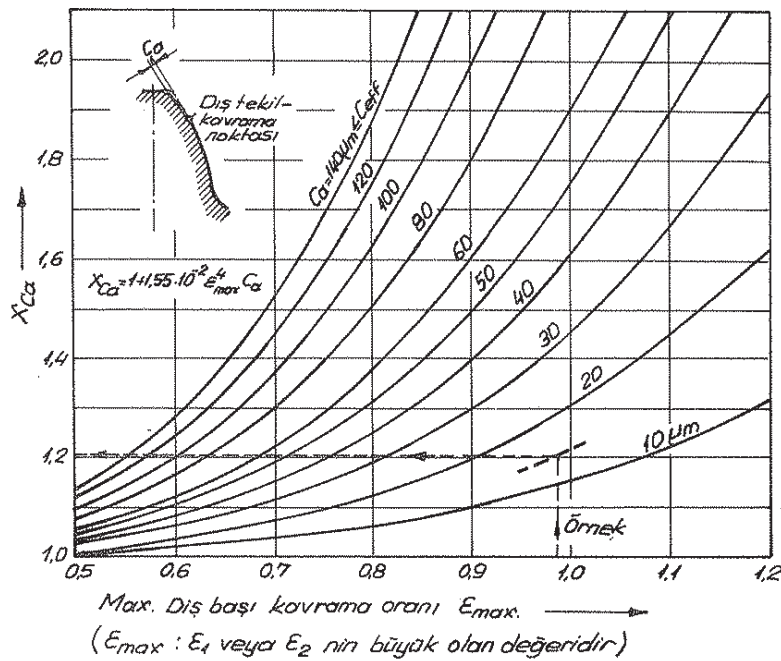 2.0
1,8
1,6
1,4
1,2
1,0
X_Ca
Ca
Dış tekil-
kavrama
noktası
X_Ca=1+1,55·10^-2 ε^4_max Ca
Ca=140μm≤Ceff
120
100
80
60
50
40
30
20
10 μm
Örnek
0,5 0,6 0,7 0,8 0,9 1,0 1,1 1,2
Max. Diş başı kavrama oranı εmax.
(εmax : ε1 veya ε2 nin büyük olan değeridir)